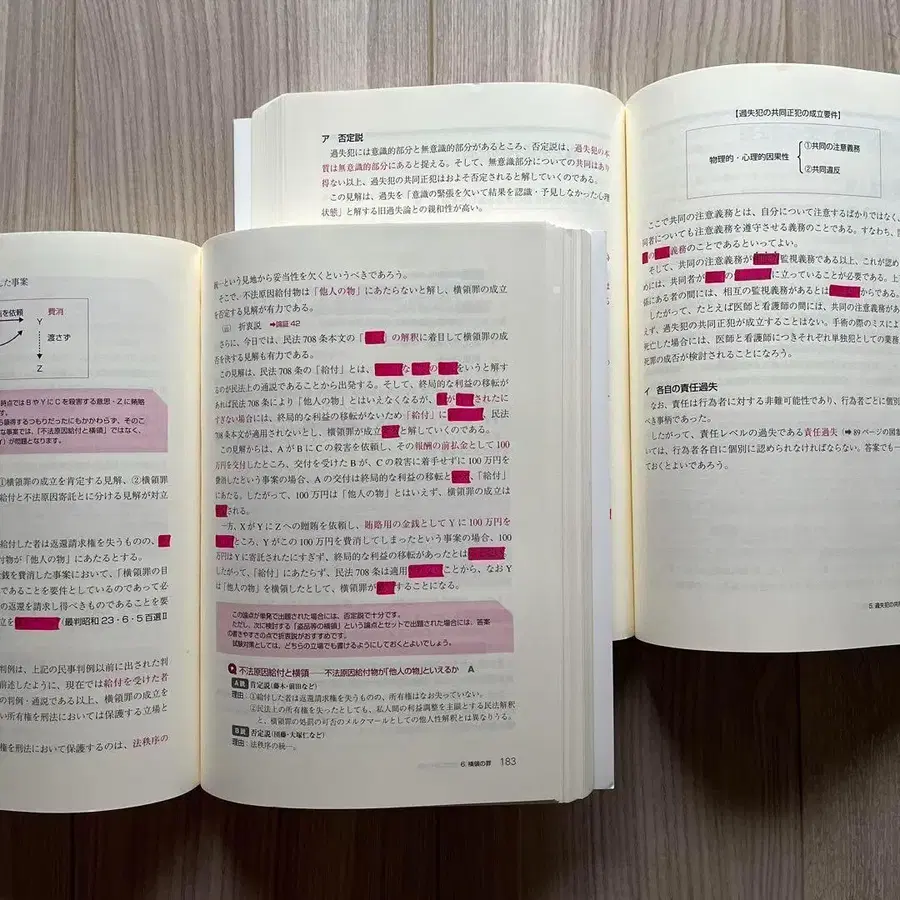 ア 否定説
過失犯には意識的部分と無意識的部分があるところ、否定説は、過失犯の本
質は無意識的部分にあると捉える。そして、無意識部分についての共同はあり
得ない以上、過失犯の共同正犯はおよそ否定されると解していくのである。
この見解は、過失を「意識の緊張を欠いて結果を認識・予見しなかった心理
状態」と解する旧過失論との親和性が高い。
【過失犯の共同正犯の成立要件】
物理的・心理的因果性
①共同の注意義務
②共同違反
ここで共同の注意義務とは、自分について注意するばかりではなく、
同者についても注意義務を遵守させる義務のことである。すなわち、
の 義務のことであるといってよい。
そして、共同の注意義務が 監視義務である以上、これが認め
めには、共同者が の に立っていることが必要である。上
係にある者の間には、相互の監視義務があるとは からである。
したがって、たとえば医師と看護師の間には、共同の注意義務があ
えず、過失犯の共同正犯が成立することはない。手術の際のミスによ
死亡した場合には、医師と看護師につきそれぞれ単独犯としての業務
死罪の成否が検討されることになろう。
イ 各自の責任過失
なお、責任は行為者に対する非難可能性であり、行為者ごとに個別
べき事柄である。
したがって、責任レベルの過失である責任過失（➡89ページの図
いては、行為者各自に個別に認められなければならない。答案でも
ておくとよいであろう。
5. 過失犯の共同
した事案
を依頼
費消
Y
渡さず
Z
時点ではBやYにCを殺害する意思・Zに賄賂
です。
ら着得するつもりだったにもかかわらず、そのこ
な事案では、「不法原因給付と横領」ではなく、
）が問題となります。
①横領罪の成立を肯定する見解、②横領罪
給付と不法原因寄託とに分ける見解が対立
給付した者は返還請求権を失うものの、
付物が「他人の物」にあたるとする。
金銭を費消した事案において、「横領罪の目
であることを要件としているのであって必
の返還を請求し得べきものであることを要
立を （最判昭和23・6・5百選Ⅱ
判例は、上記の民事判例以前に出された判
前述したように、現在では給付を受けた者
の判例・通説である以上、横領罪の成立を
い所有権を刑法においては保護する立場と
権を刑法において保護するのは、法秩序の
統一という見地から妥当性を欠くというべきであろう。
そこで、不法原因給付物は「他人の物」にあたらないと解し、横領罪の成立
を否定する見解が有力である。
(iii) 折衷説 ➡論証42
さらに、今日では、民法708条本文の「 」の解釈に着目して横領罪の成
否を決する見解も有力である。
この見解は、民法708条の「給付」とは、 な の をいうと解す
るのが民法上の通説であることから出発する。そして、終局的な利益の移転が
あれば民法708条により「他人の物」とはいえなくなるが、 が されたに
すぎない場合には、終局的な利益の移転がないため「給付」に 、民法
708条本文が適用されないとし、横領罪が成立 と解していくのである。
この見解からは、AがBにCの殺害を依頼し、その報酬の前払金として100
万円を交付したところ、交付を受けたBが、Cの殺害に着手せずに100万円を
費消したという事案の場合、Aの交付は終局的な利益の移転と 、「給付」
にあたる。したがって、100万円は「他人の物」とはいえず、横領罪の成立は
される。
一方、XがYにZへの贈賄を依頼し、賄賂用の金銭としてYに100万円を
ところ、Yがこの100万円を費消してしまったという事案の場合、100
万円はYに寄託されたにすぎず、終局的な利益の移転があったとは 。
したがって、「給付」にあたらず、民法708条は適用 ことから、なおY
は「他人の物」を横領したとして、横領罪が することになる。
この論点が単発で出題された場合には、否定説で十分です。
ただし、次に検討する「盗品等の横領」という論点とセットで出題された場合には、答案
の書きやすさの点で折衷説がおすすめです。
試験対策としては、どちらの立場でも書けるようにしておくとよいでしょう。
Q 不法原因給付と横領――不法原因給付物が「他人の物」といえるか A
A説 肯定説(藤木・前田など)
理由：①給付した者は返還請求権を失うものの、所有権はなお失っていない。
②民法上の所有権を失ったとしても、私人間の利益調整を主眼とする民法解釈
と、横領罪の処罰の可否のメルクマールとしての他人性解釈とは異なりうる。
B説 否定説(団藤・大塚仁など)
理由：法秩序の統一。
6. 横領の罪 183